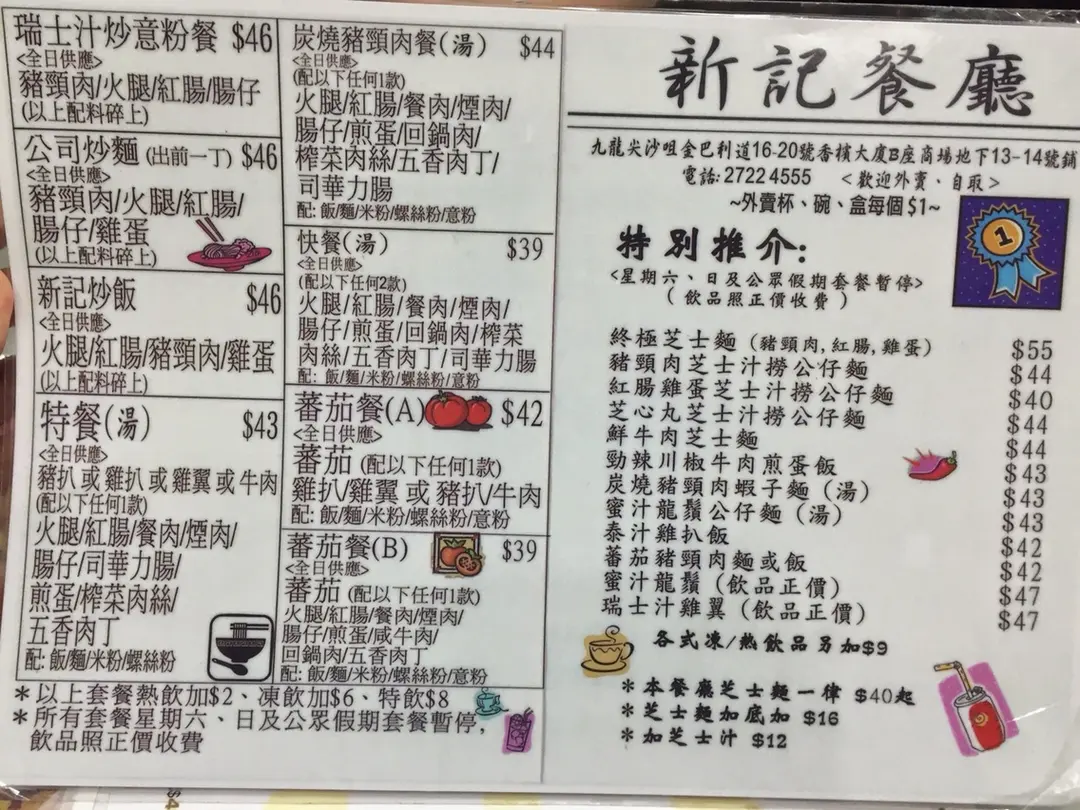 瑞士汁炒意粉餐 $46
<全日供應>
豬頸肉/火腿/紅腸/腸仔
(以上配料碎上)
公司炒麵 (出前一丁) $46
<全日供應>
豬頸肉/火腿/紅腸/
腸仔/雞蛋
(以上配料碎上)
新記炒飯 $46
<全日供應>
火腿/紅腸/豬頸肉/雞蛋
(以上配料碎上)
特餐(湯) $43
<全日供應>
豬扒 或 雞扒 或 雞翼 或 牛肉
(配以下任何1款)
火腿/紅腸/餐肉/煙肉/
腸仔/司華力腸/
煎蛋/榨菜肉絲/
五香肉丁
配: 飯/麵/米粉/螺絲粉
炭燒豬頸肉餐(湯) $44
<全日供應>
(配以下任何1款)
火腿/紅腸/餐肉/煙肉/
腸仔/煎蛋/回鍋肉/
榨菜肉絲/五香肉丁/
司華力腸
配: 飯/麵/米粉/螺絲粉/意粉
快餐(湯) $39
<全日供應>
(配以下任何2款)
火腿/紅腸/餐肉/煙肉/
腸仔/煎蛋/回鍋肉/榨菜
肉絲/五香肉丁/司華力腸
配: 飯/麵/米粉/螺絲粉/意粉
蕃茄餐(A) $42
<全日供應>
蕃茄 (配以下任何1款)
雞扒/雞翼 或 豬扒/牛肉
配: 飯/麵/米粉/螺絲粉/意粉
蕃茄餐(B) $39
<全日供應>
蕃茄 (配以下任何1款)
火腿/紅腸/餐肉/煙肉/
腸仔/煎蛋/咸牛肉/
回鍋肉/五香肉丁
配: 飯/麵/米粉/螺絲粉/意粉
*以上套餐熱飲加$2、凍飲加$6、特飲$8
*所有套餐星期六、日及公眾假期套餐暫停,
飲品照正價收費
新記餐廳
九龍尖沙咀金巴利道16-20號香檳大廈B座商場地下13-14號鋪
電話: 2722 4555 <歡迎外賣、自取>
~外賣杯、碗、盒每個$1~
1
特別推介:
<星期六、日及公眾假期套餐暫停>
(飲品照正價收費)
終極芝士麵 (豬頸肉,紅腸,雞蛋) $55
豬頸肉芝士汁撈公仔麵 $44
紅腸雞蛋芝士汁撈公仔麵 $40
芝心丸芝士汁撈公仔麵 $44
鮮牛肉芝士麵 $44
勁辣川椒牛肉煎蛋飯 $43
炭燒豬頸肉蝦子麵 (湯) $43
蜜汁龍鬚公仔麵 (湯) $43
泰汁雞扒飯 $42
蕃茄豬頸肉麵或飯 $42
蜜汁龍鬚 (飲品正價) $47
瑞士汁雞翼 (飲品正價) $47
各式凍/熱飲品另加$9
*本餐廳芝士麵一律 $40起
*芝士麵加底加 $16
*加芝士汁 $12